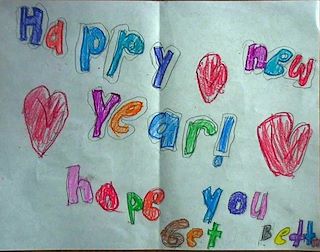 Happy new
Year!
hope you
Get Bett